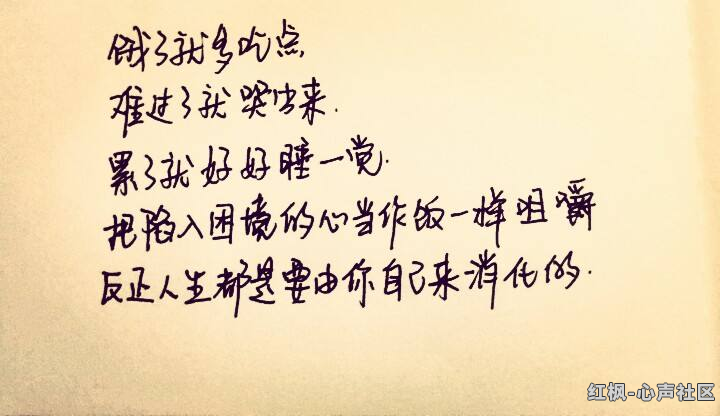 饿了就多吃点
难过了就哭出来.
累了就好好睡一觉.
把陷入困境的心当作饭一样咀嚼
反正人生都是要由你自己来消化的.
红枫-心声社区